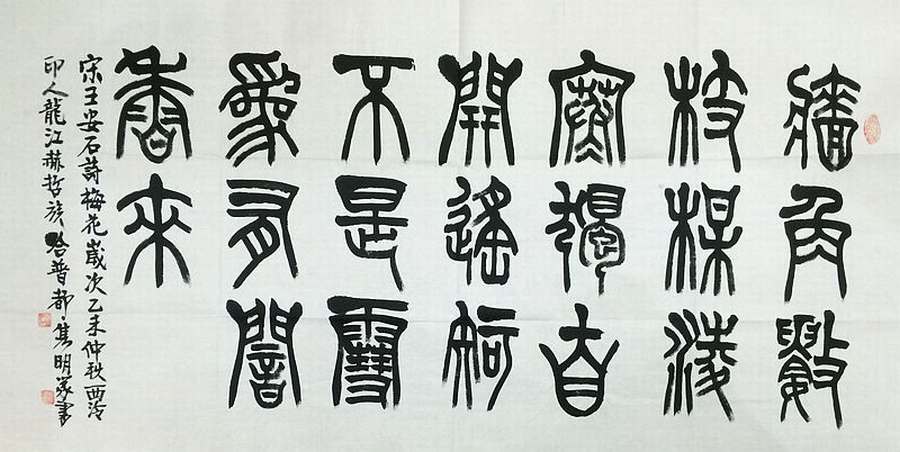 牆角數
枝楳淩
寒獨自
開遙知
不是雪
爲有闇
香來
宋王安石詩梅花歲次乙未仲秋西泠
印人龍江赫哲族哈普都·隽明篆書